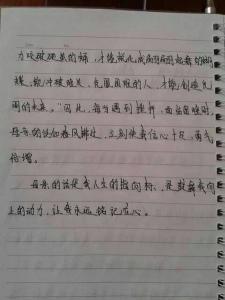 力咬破硬茧的蛹，才能蜕化成翩翩起舞的蝴
蝶，能冲破难关、克服困难的人，才能创造
美的未来。"因此，每当遇到挫折，面临困难时，
母亲的话如春风拂过，立刻使我信心十足，勇气
倍增。
母亲的话是我人生的指向标，是鼓舞我向
上的动力，让我永远铭记在心。